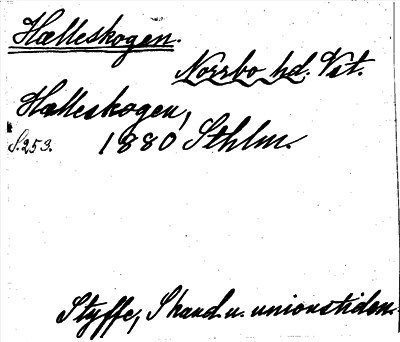 Hælleskogen.
Norrbo hd. Vst.
Hælleskogen,
S. 253. 1880 Sthlm.
Styffe, Skand. u. unionstiden.